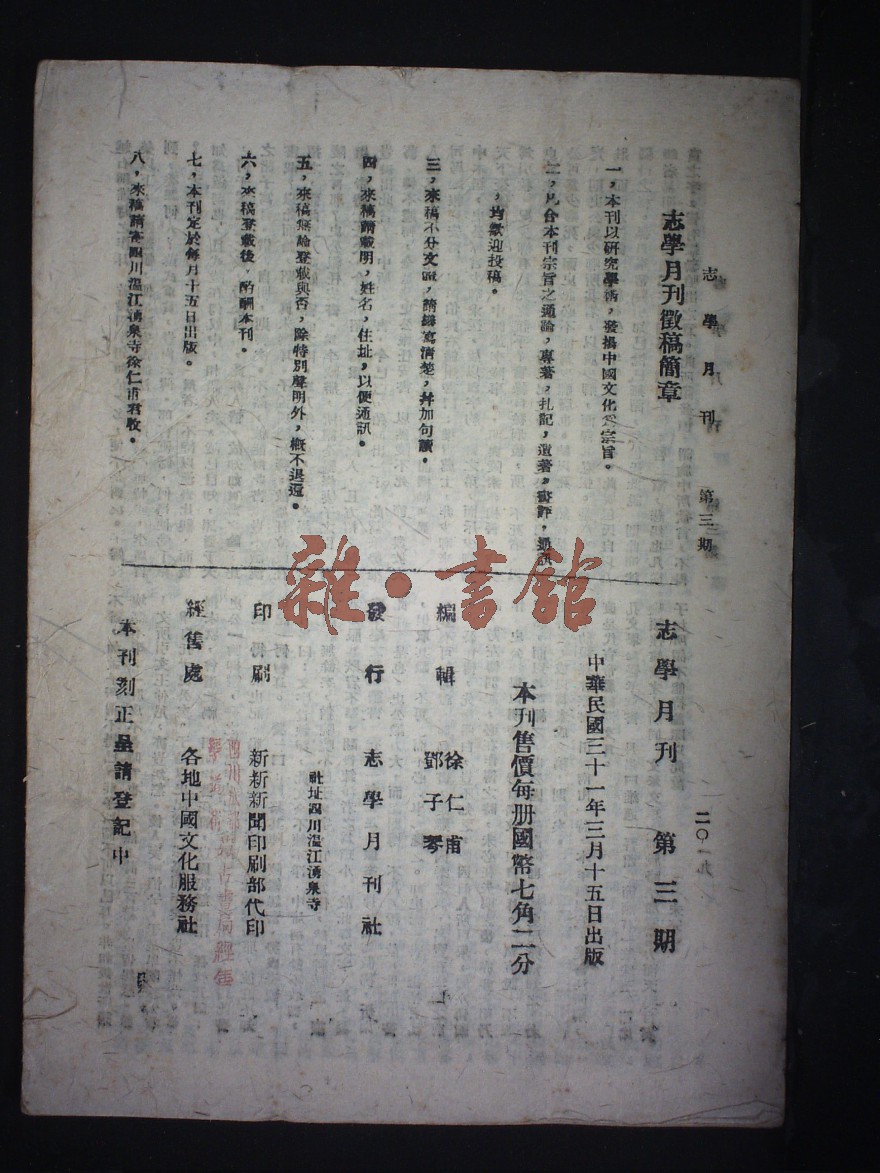 志學月刊　第三期　二〇
志學月刊徵稿簡章
一，本刊以研究學術，發揚中國文化爲宗旨。
二，凡合本刊宗旨之通論，專著，札記，遺著，書評，通訊
，均歡迎投稿。
三，來稿不分文體，請繕寫清楚，幷加句讀。
四，來稿請載明，姓名，住址，以便通訊。
五，來稿無論登載與否，除特別聲明外，概不退還。
六，來稿登載後，酌酬本刊。
七，本刊定於每月十五日出版。
八，來稿請寄四川溫江湧泉寺徐仁甫君收。
志學月刊　第三期
中華民國三十一年三月十五日出版
本刊售價每册國幣七角二分
編輯　徐仁甫
鄧子琴
發行　志學月刊社
社址四川溫江湧泉寺
印刷　新新新聞印刷部代印
經售處　各地中國文化服務社
經售
本刊刻正呈請登記中
雜·書館